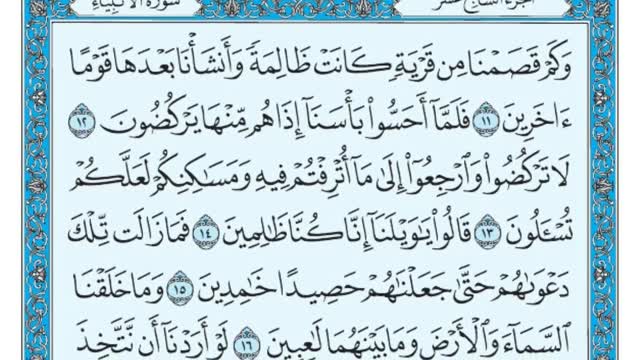 الجزء السابع عشر سورة الأنبياء
وَكَمْ قَصَمْنَا مِن قَرْيَةٍ كَانَتْ ظَالِمَةً وَأَنشَأْنَا بَعْدَهَا قَوْمًا
ءَاخَرِينَ ١١ فَلَمَّآ أَحَسُّوا۟ بَأْسَنَآ إِذَا هُم مِّنْهَا يَرْكُضُونَ ١٢
لَا تَرْكُضُوا۟ وَٱرْجِعُوٓا۟ إِلَىٰ مَآ أُتْرِفْتُمْ فِيهِ وَمَسَـٰكِنِكُمْ لَعَلَّكُمْ
تُسْـَٔلُونَ ١٣ قَالُوا۟ يَـٰوَيْلَنَآ إِنَّا كُنَّا ظَـٰلِمِينَ ١٤ فَمَا زَالَت تِّلْكَ
دَعْوَىٰهُمْ حَتَّىٰ جَعَلْنَـٰهُمْ حَصِيدًا خَـٰمِدِينَ ١٥ وَمَا خَلَقْنَا
ٱلسَّمَآءَ وَٱلْأَرْضَ وَمَا بَيْنَهُمَا لَـٰعِبِينَ ١٦ لَوْ أَرَدْنَآ أَن نَّتَّخِذَ